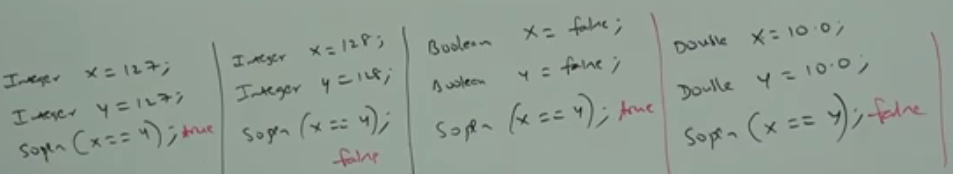 Integer x = 127;
Integer y = 127;
Sopln (x == y); true
Integer x = 128;
Integer y = 128;
Sopln (x == y);
false
Boolean x = false;
Boolean y = false;
Sopln (x == y); true
Double x = 10.0;
Double y = 10.0;
Sopln (x == y); false